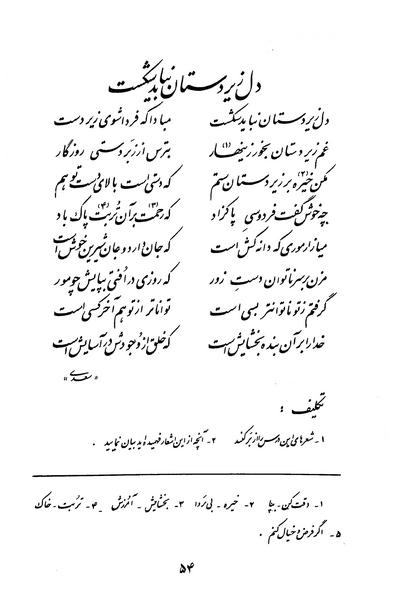 دل زیردستان نباید شکست
دل زیردستان نباید شکست مبادا که فردا شوی زیردست
غم زیردستان بخور زینهار (۱) بترس از زبردستی روزگار
مکن خیره (۲) بر زیردستان ستم که دستی است بالای دست تو هم
چه خوش گفت فردوسی پاکزاد که رحمت (۳) بر آن تربت (۴) پاک باد
میازار موری که دانه کش است که جان دارد و جان شیرین خوش است
مزن بر سر ناتوان دست زور که روزی در افتی بپایش چو مور
گرفتم ز تو ناتوانتر بسی است تواناتر از تو هم آخر کسی است
خدا را بر آن بنده بخشایش است که خلق از وجودش در آسایش است
« سعدی »
تکلیف :
۱ـ شعرهای این درس را از بر کنند ۲ـ آنچه از این اشعار فهمیده‌اید بیان نمایید .
۱ـ دقت کن ـ بپا ۲ـ خیره ـ بی پروا ۳ـ بخشایش ـ آمرزش ۴ـ تربت ـ خاک
۵ـ اگر فرض و خیال کنم .
۵۴